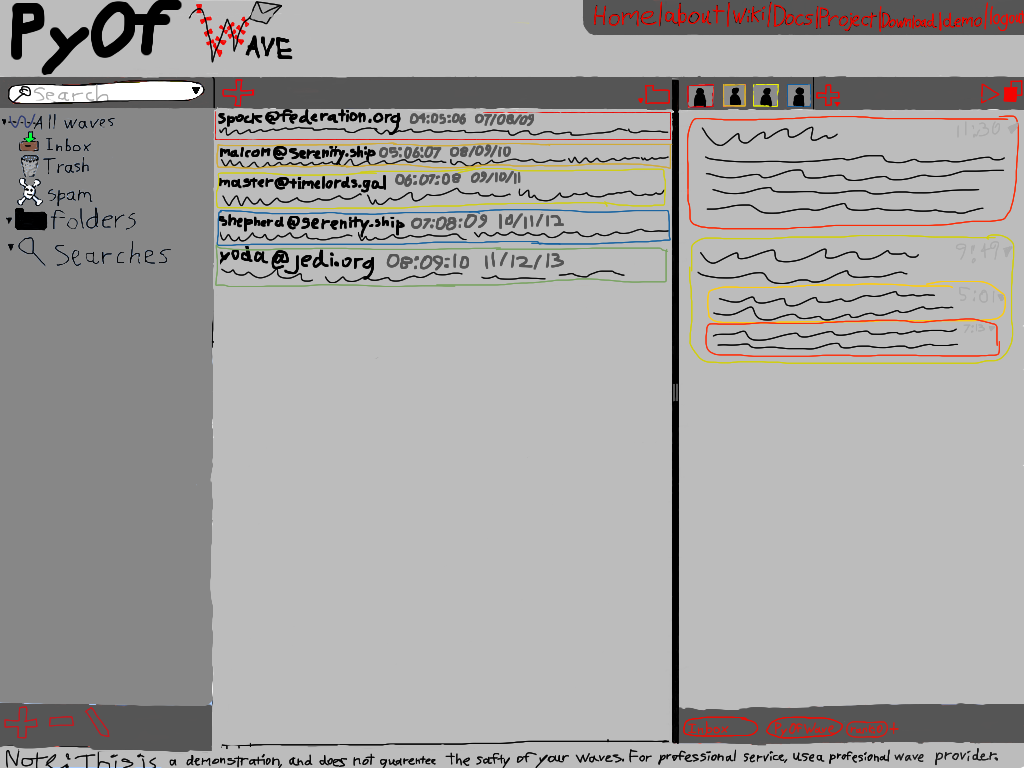 PyOf WAVE
Home|about|Wiki|Docs|Project|Download|demo|logout
Search
All waves
Inbox
Trash
Spam
folders
Searches
spock@federation.org 04:05:06 07/08/09
malcom@serenity.ship 05:06:07 08/09/10
master@timelords.gal 06:07:08 09/10/11
shepherd@serenity.ship 07:08:09 10/11/12
yoda@jedi.org 08:09:10 11/12/13
11:30
9:49
5:01
7:13
Inbox PyOfWave
Note: This is a demonstration, and does not guarentee the safty of your Waves. For professional service, use a profesional wave provider.